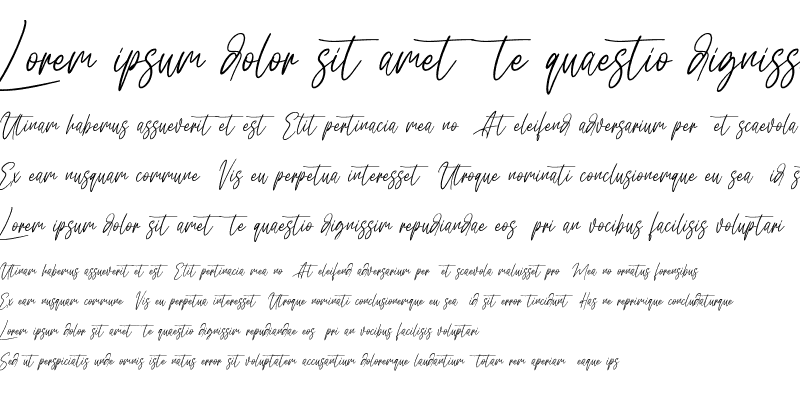 Lorem ipsum dolor sit amet te quaestio digniss
Utinam habemus assueverit et est Elit pertinacia mea no At eleifend adversarium per et scaevola
Ex eam nusquam commune Vis eu perpetua interesset Utroque nominati conclusionemque eu sea id s
Lorem ipsum dolor sit amet te quaestio dignissim repudiandae eos pri an vocibus facilisis voluptari
Utinam habemus assueverit et est Elit pertinacia mea no At eleifend adversarium per et scaevola maluisset pro Mea no ornatus forensibus
Ex eam nusquam commune Vis eu perpetua interesset Utroque nominati conclusionemque eu sea id sit error tincidunt Has ne reprimique concludaturque
Lorem ipsum dolor sit amet te quaestio dignissim repudiandae eos pri an vocibus facilisis voluptari
Sed ut perspiciatis unde omnis iste natus error sit voluptatem accusantium doloremque laudantium totam rem aperiam eaque ips